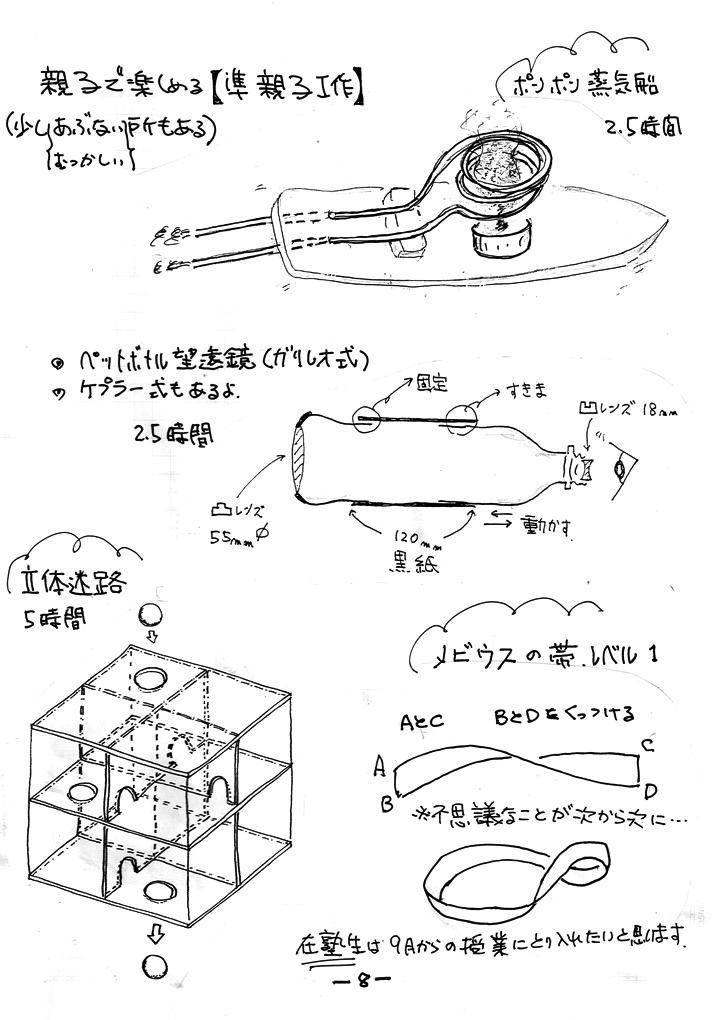 親子で楽しめる【準親子工作】
(少しあぶない所もある)
むつかしい
ポンポン蒸気船
2.5時間
ペットボトル望遠鏡(ガリレオ式)
ケプラー式もあるよ.
2.5時間
固定
すきま
凹レンズ 18mm
凸レンズ
55mmφ
120mm
黒紙
動かす
立体迷路
5時間
メビウスの帯.レベル1
AとC BとDをくっつける
A
B
C
D
※不思議なことが次から次に…
在塾生は9月からの授業にとり入れたいと思います.
-8-